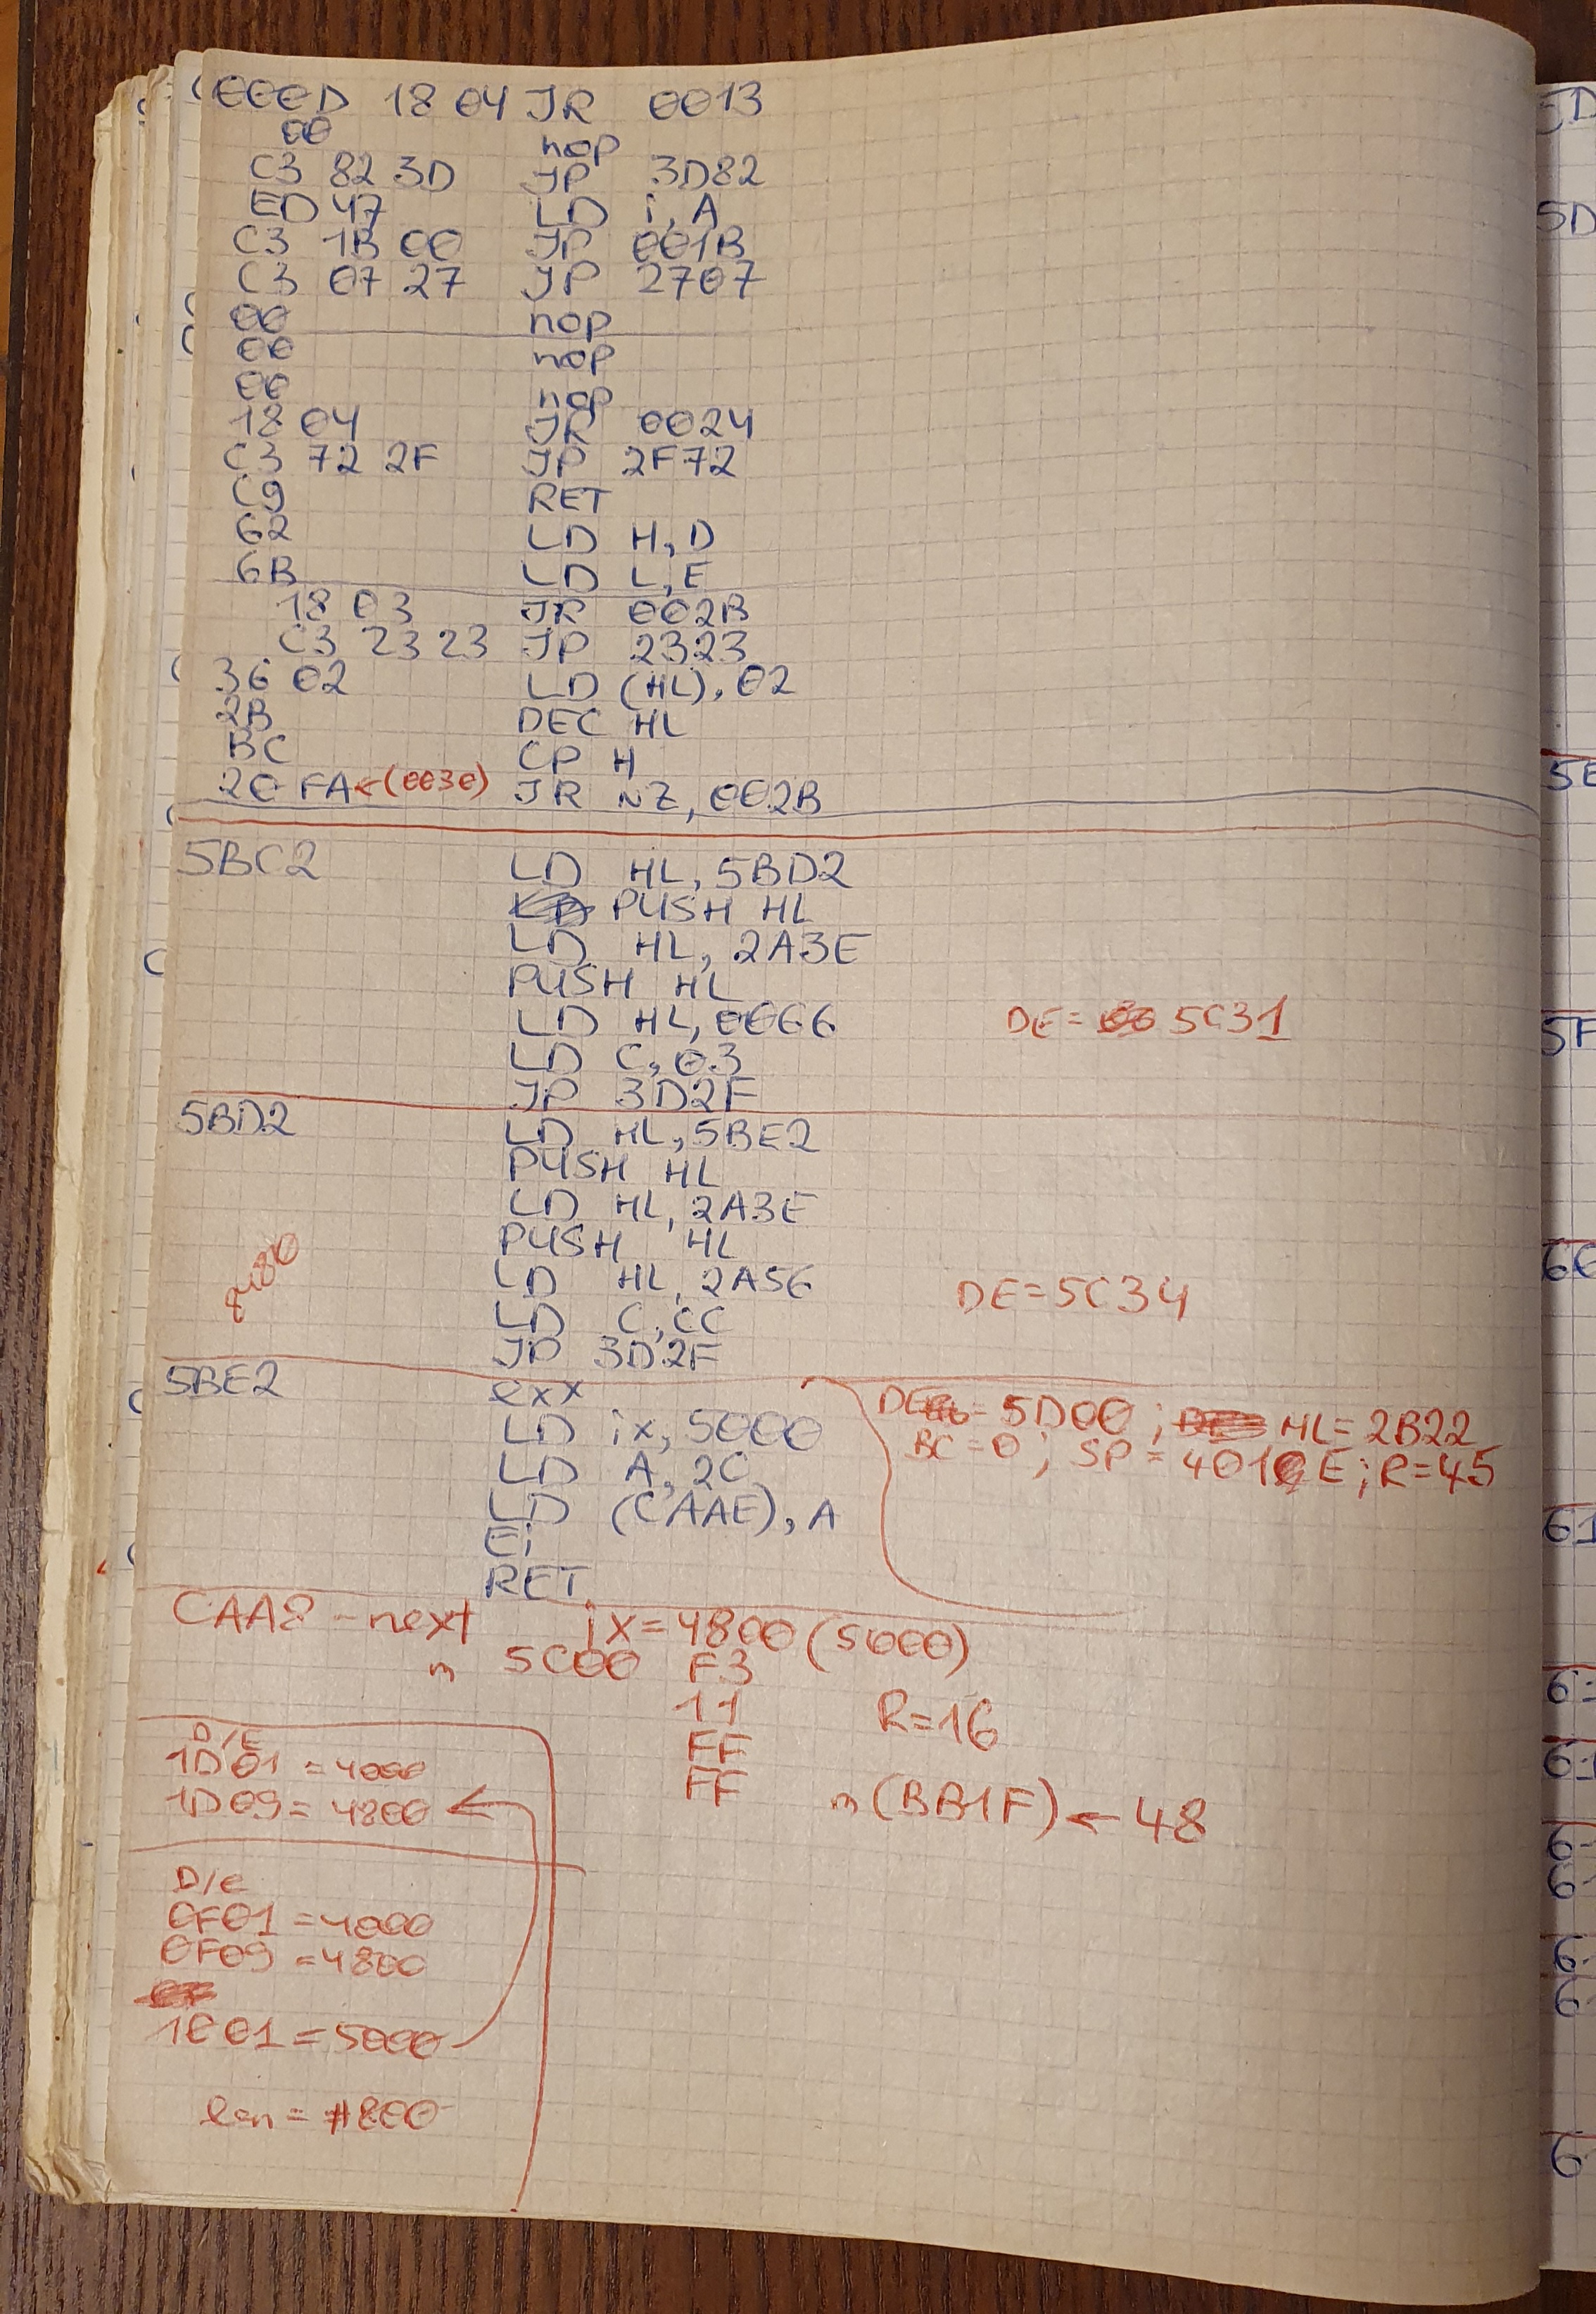 000D 18 04 JR 0013
00 nop
C3 82 3D JP 3D82
ED 47 LD i, A
C3 1B 00 JP 001B
C3 07 27 JP 2707
00 nop
00 nop
00 nop
18 04 JR 0024
C3 72 2F JP 2F72
C9 RET
62 LD H, D
6B LD L, E
18 03 JR 002B
C3 23 23 JP 2323
36 02 LD (HL), 02
2B DEC HL
BC CP H
20 FA ←(0030) JR NZ, 002B
5BC2 LD HL, 5BD2
PUSH HL
LD HL, 2A3E
PUSH HL
LD HL, 0066 DE= 5C31
LD C, 03
JP 3D2F
5BD2 LD HL, 5BE2
PUSH HL
LD HL, 2A3E
PUSH HL
LD HL, 2A56 DE=5C34
LD C, CC
JP 3D2F
5BE2 exx
LD ix, 5000
LD A, 2C
LD (CAAE), A
Ei
RET
DE = 5D00; HL=2B22
BC=0; SP=401E; R=45
CAA8 - next ix=4800 (5000)
5C00 F3
11 R=16
FF
FF (BB1F) ← 48
D/E
1D01 = 4000
1D09 = 4800 ←
D/e
0F01 = 4000
0F09 = 4800
1001 = 5000
len = #800
5D
5E
5F
60
61